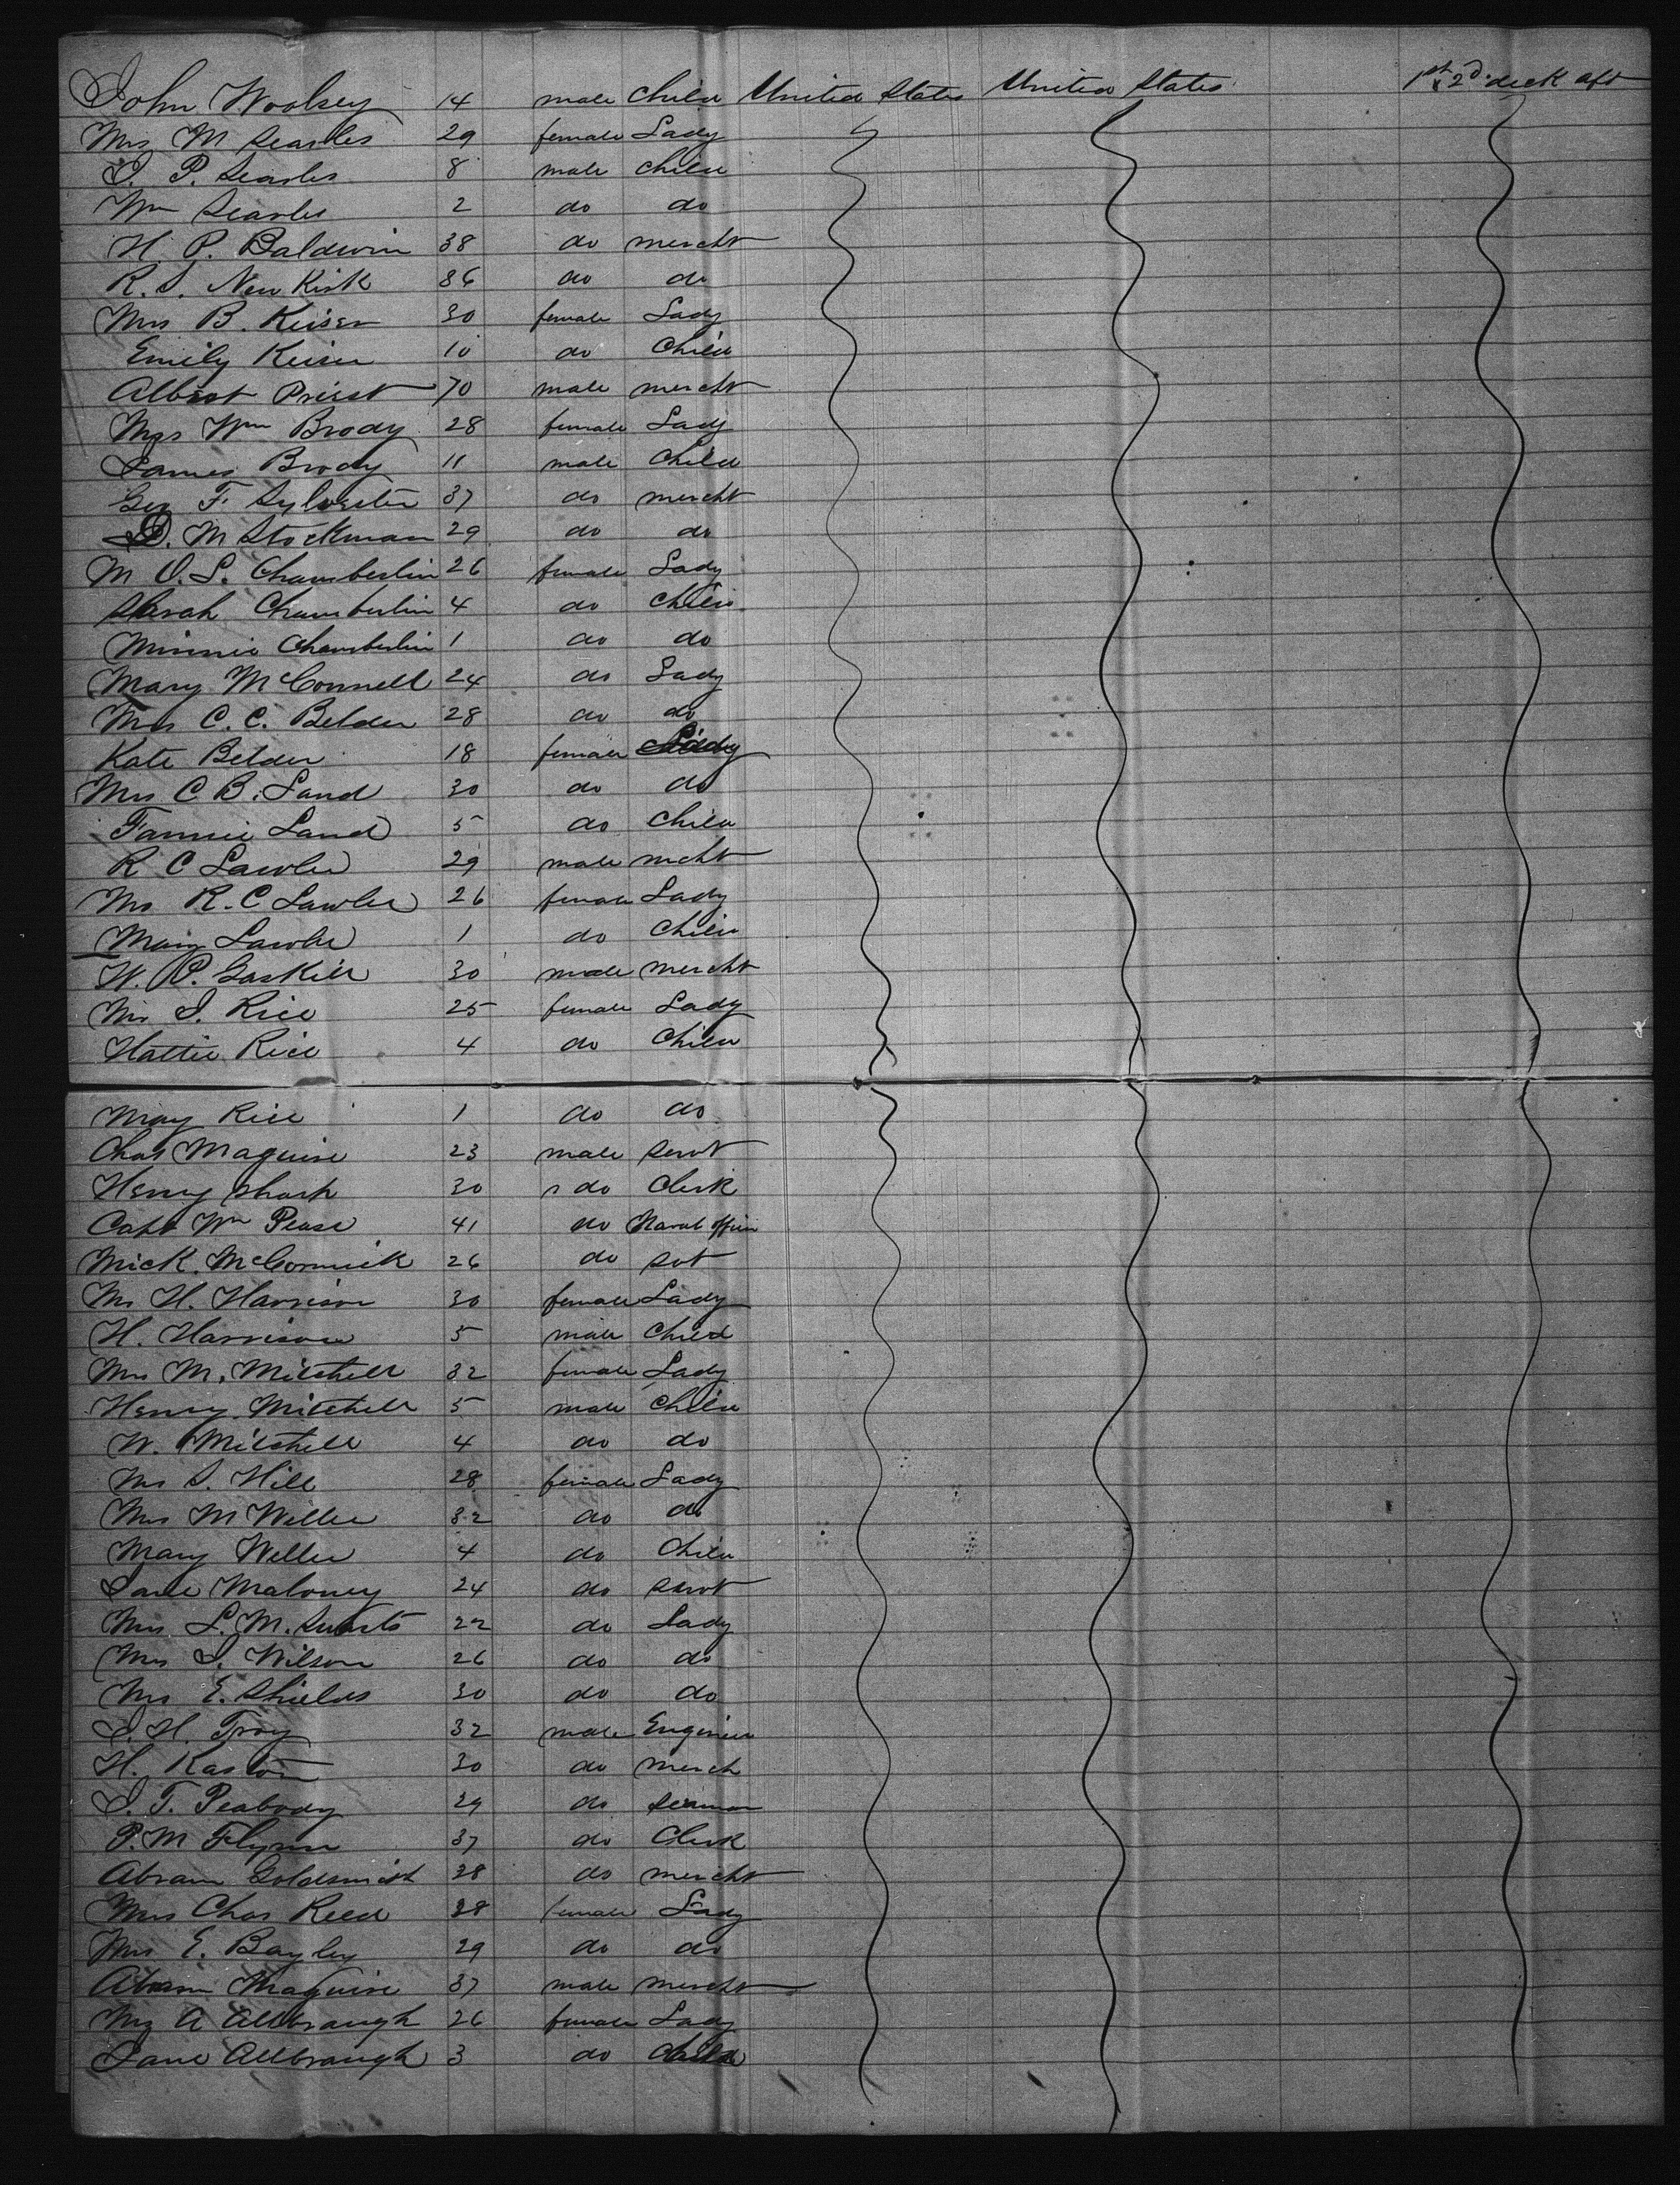 John Woolsey 14 male child United States United States 1st & 2d deck aft
Mrs M Searles 29 female Lady
J. P. Searles 8 male child
Wm Searles 2 do do
H. P. Baldwin 38 do mercht
R. S. New Kirk 36 do do
Mrs B. Keiser 30 female Lady
Emily Keiser 10 do Child
Albert Priest 70 male mercht
Mrs Wm Brody 28 female Lady
James Brody 11 male Child
Geo F. Sylvester 37 do mercht
D. M Stockman 29 do do
M O. L. Chamberlin 26 female Lady
Sarah Chamberlin 4 do Child
Minnie Chamberlin 1 do do
Mary McConnell 24 do Lady
Mrs C. C. Belden 28 do do
Kate Belden 18 female Lady
Mrs C B. Land 30 do do
Fannie Land 5 do Child
R C Lawler 29 male mcht
Mrs R. C Lawler 26 female Lady
Mary Lawler 1 do Child
W. P. Gaskill 30 male mercht
Mrs J. Rice 25 female Lady
Hattie Rice 4 do Child
May Rice 1 do do
Chas Maguire 23 male servt
Henry Shark 30 do Clerk
Capt Wm Pease 41 do Naval
Mick. McCormick 26 do svt
Mrs H. Harrison 30 female Lady
H. Harrison 5 male Child
Mrs M. Mitchell 32 female Lady
Henry Mitchell 5 male Child
W. Mitchell 4 do do
Mrs S. Hill 28 female Lady
Mrs M Weller 32 do do
Mary Weller 4 do Child
Jane Maloney 24 do servt
Mrs L. M. 22 do Lady
Mrs J. Wilson 26 do do
Mrs E. Shields 30 do do
J. H. Troy 32 male Engineer
H. Kaston 30 do merch
J. T. Peabody 29 do seaman
P. M Flynn 37 do Clerk
Abram Goldsmith 28 do mercht
Mrs Chas Reed 28 female Lady
Mrs E. Bayley 29 do do
Abram Maguire 37 male mercht
Mrs A Allbraugh 26 female Lady
Jane Allbraugh 3 do child